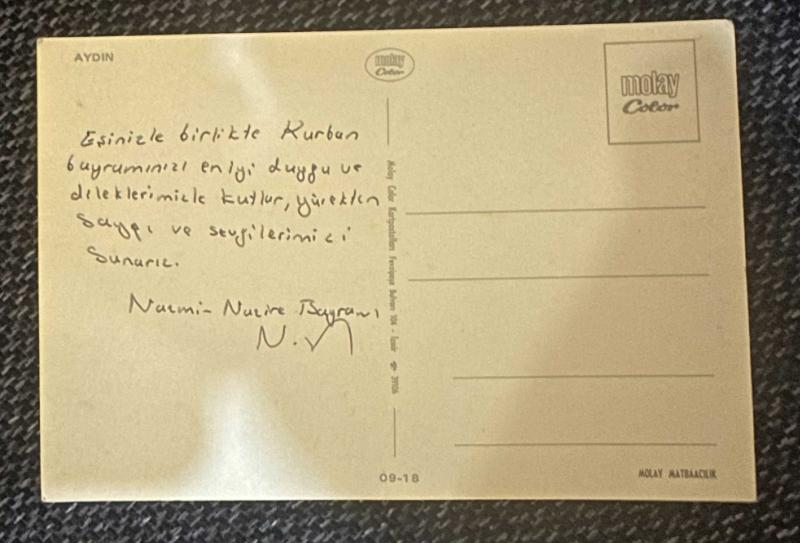 AYDIN
molay
Color
molay
Color
Eşinizle birlikte Kurban
bayramınızı en iyi duygu ve
dileklerimizle kutlar, yürekten
saygı ve sevgilerimizi
sunarız.
Nazmi- Nazire Bayramı
N.
Molay Color Kartpostalları Fevzipaşa Bulvarı 104 - İzmir
09-18
MOLAY MATBAACILIK